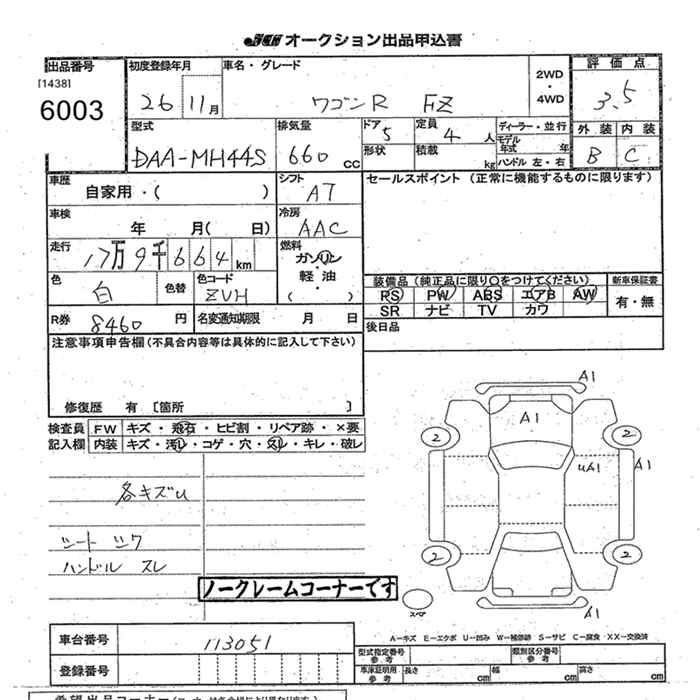 JCM オークション出品申込書
出品番号 初度登録年月 車名・グレード 評価点
[1438]
6003
26 11月 ワゴンR FZ 2WD・4WD 3.5
型式 排気量 ドア 5 定員 4 人 ディーラー・並行 外装 内装
DAA-MH44S 660 CC 形状 積載 kg モデル年式 年 ハンドル 左・右 B C
車歴 シフト セールスポイント (正常に機能するものに限ります)
自家用・( ) AT
車検 冷房
年 月( 日) AAC
走行 燃料
17万9千664km ガソリン・軽油 ( )
色 色替 色コード 装備品 (純正品に限り○をつけてください) 新車保証書
白 ZVH RS PW ABS エアB AW 有・無
SR ナビ TV カワ
R券 8460 円 名変通知期限 月 日 後日品
注意事項申告欄 (不具合内容等は具体的に記入して下さい)
修復歴 有 [箇所 ]
検査員 FW キズ・飛石・ヒビ割・リペア跡・×要
記入欄 内装 キズ・汚レ・コゲ・穴・スレ・キレ・破レ
A1
A1
2 2
uA1 A1
2 2
A1
各キズU
シート シワ
ハンドル スレ
ノークレームコーナーです
スペア
A-キズ E-エクボ U-凹み W-補修跡 S-サビ C-腐食 XX-交換済
車台番号 113051
型式指定番号 参考 類別区分番号 参考
登録番号
車庫証明用 参考 長さ cm 幅 cm 高さ cm